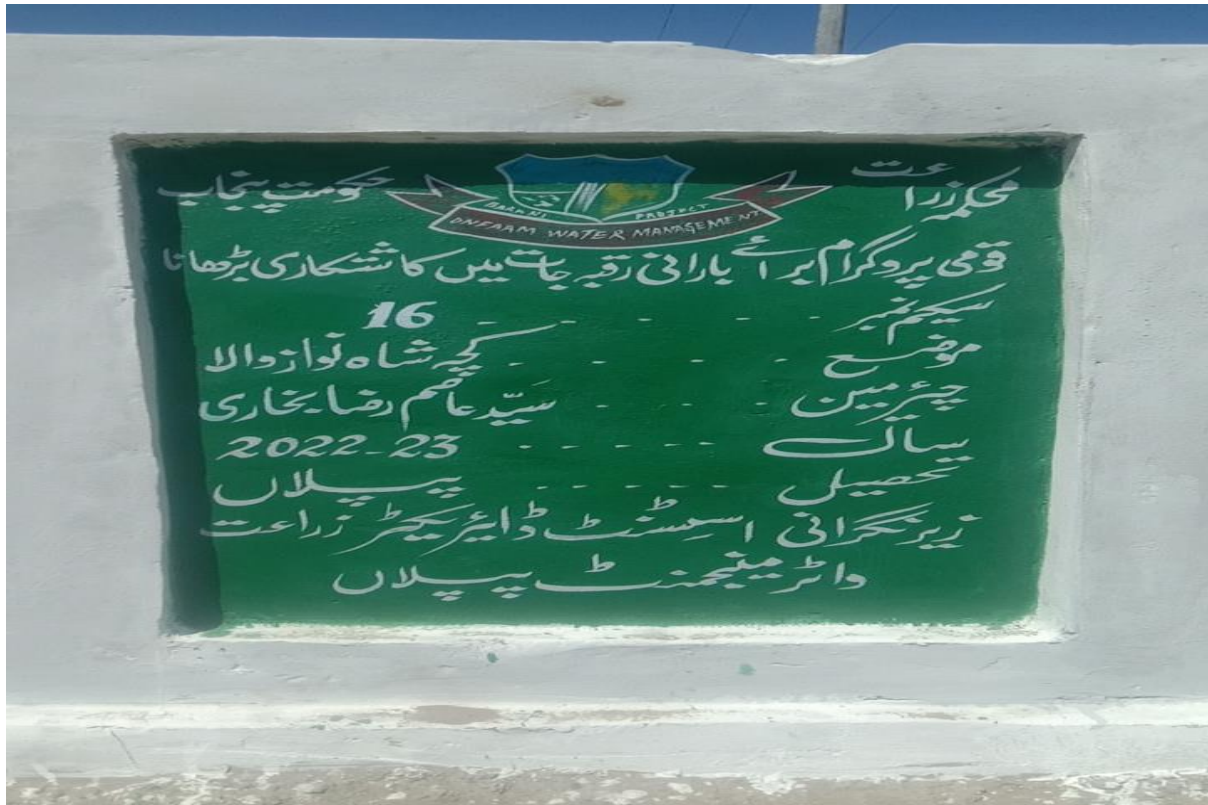 محکمہ زراعت حکومت پنجاب
BARANI PROJECT
ONFARM WATER MANAGEMENT
قومی پروگرام برائے بارانی رقبہ جات میں کاشتکاری بڑھانا
سکیم نمبر - - - - - 16
موضع - - - - کچہ شاہ نواز والا
چئرمین - - - - سیّد عاصم رضا بخاری
سال - - - - - 2022-23
تحصیل - - - - - پیپلاں
زیر نگرانی اسسٹنٹ ڈایئریکٹر زراعت
واٹر مینجمنٹ پیپلاں